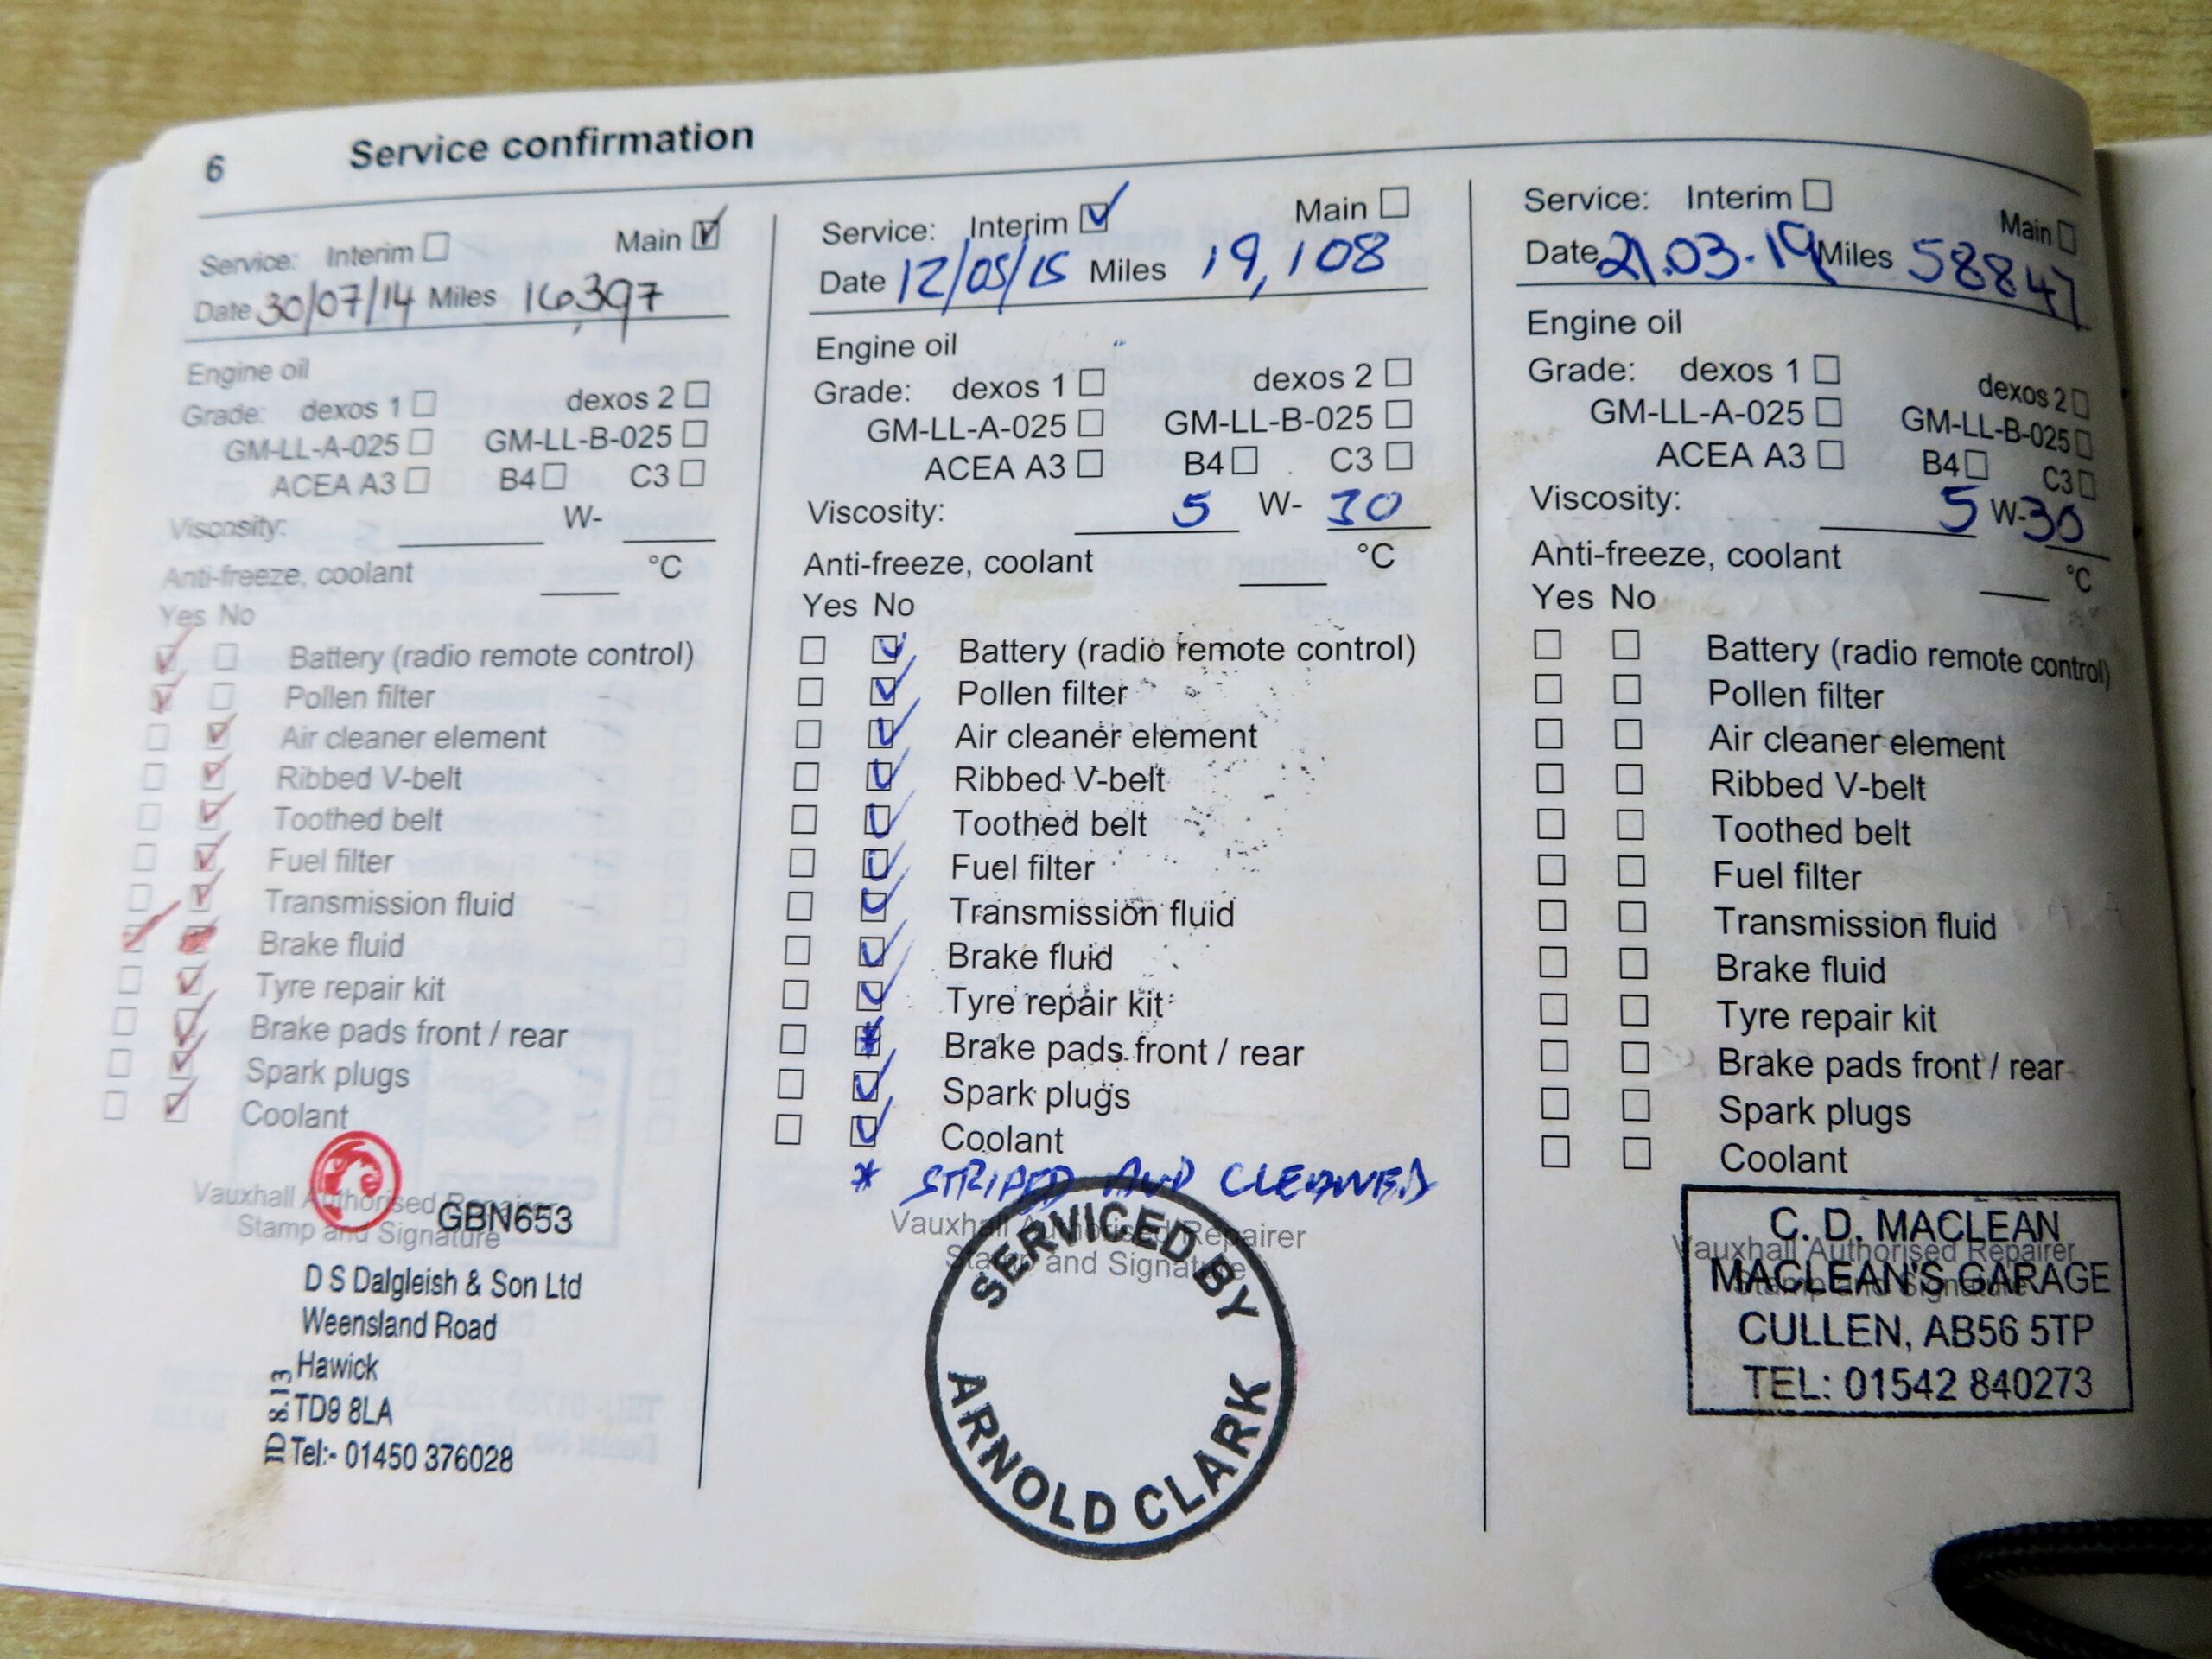 6 Service confirmation
Service: Interim Main
Date 30/07/14 Miles 16,397
Engine oil
Grade: dexos 1 dexos 2
GM-LL-A-025 GM-LL-B-025
ACEA A3 B4 C3
Viscosity: W-
Anti-freeze, coolant °C
Yes No
Battery (radio remote control)
Pollen filter
Air cleaner element
Ribbed V-belt
Toothed belt
Fuel filter
Transmission fluid
Brake fluid
Tyre repair kit
Brake pads front / rear
Spark plugs
Coolant
Vauxhall Authorised Repairer
Stamp and Signature
GBN653
D S Dalgleish & Son Ltd
Weensland Road
Hawick
TD9 8LA
Tel:- 01450 376028
ID 8.13
Service: Interim Main
Date 12/05/15 Miles 19,108
Engine oil
Grade: dexos 1 dexos 2
GM-LL-A-025 GM-LL-B-025
ACEA A3 B4 C3
Viscosity: 5 W- 30
Anti-freeze, coolant °C
Yes No
Battery (radio remote control)
Pollen filter
Air cleaner element
Ribbed V-belt
Toothed belt
Fuel filter
Transmission fluid
Brake fluid
Tyre repair kit
Brake pads front / rear
Spark plugs
Coolant
* STRIPED AND CLEANED
Vauxhall Authorised Repairer
Stamp and Signature
SERVICED BY
ARNOLD CLARK
Service: Interim Main
Date 21.03.19 Miles 58847
Engine oil
Grade: dexos 1 dexos 2
GM-LL-A-025 GM-LL-B-025
ACEA A3 B4 C3
Viscosity: 5 W-30
Anti-freeze, coolant °C
Yes No
Battery (radio remote control)
Pollen filter
Air cleaner element
Ribbed V-belt
Toothed belt
Fuel filter
Transmission fluid
Brake fluid
Tyre repair kit
Brake pads front / rear
Spark plugs
Coolant
Vauxhall Authorised Repairer
Stamp and Signature
C. D. MACLEAN
MACLEAN'S GARAGE
CULLEN, AB56 5TP
TEL: 01542 840273